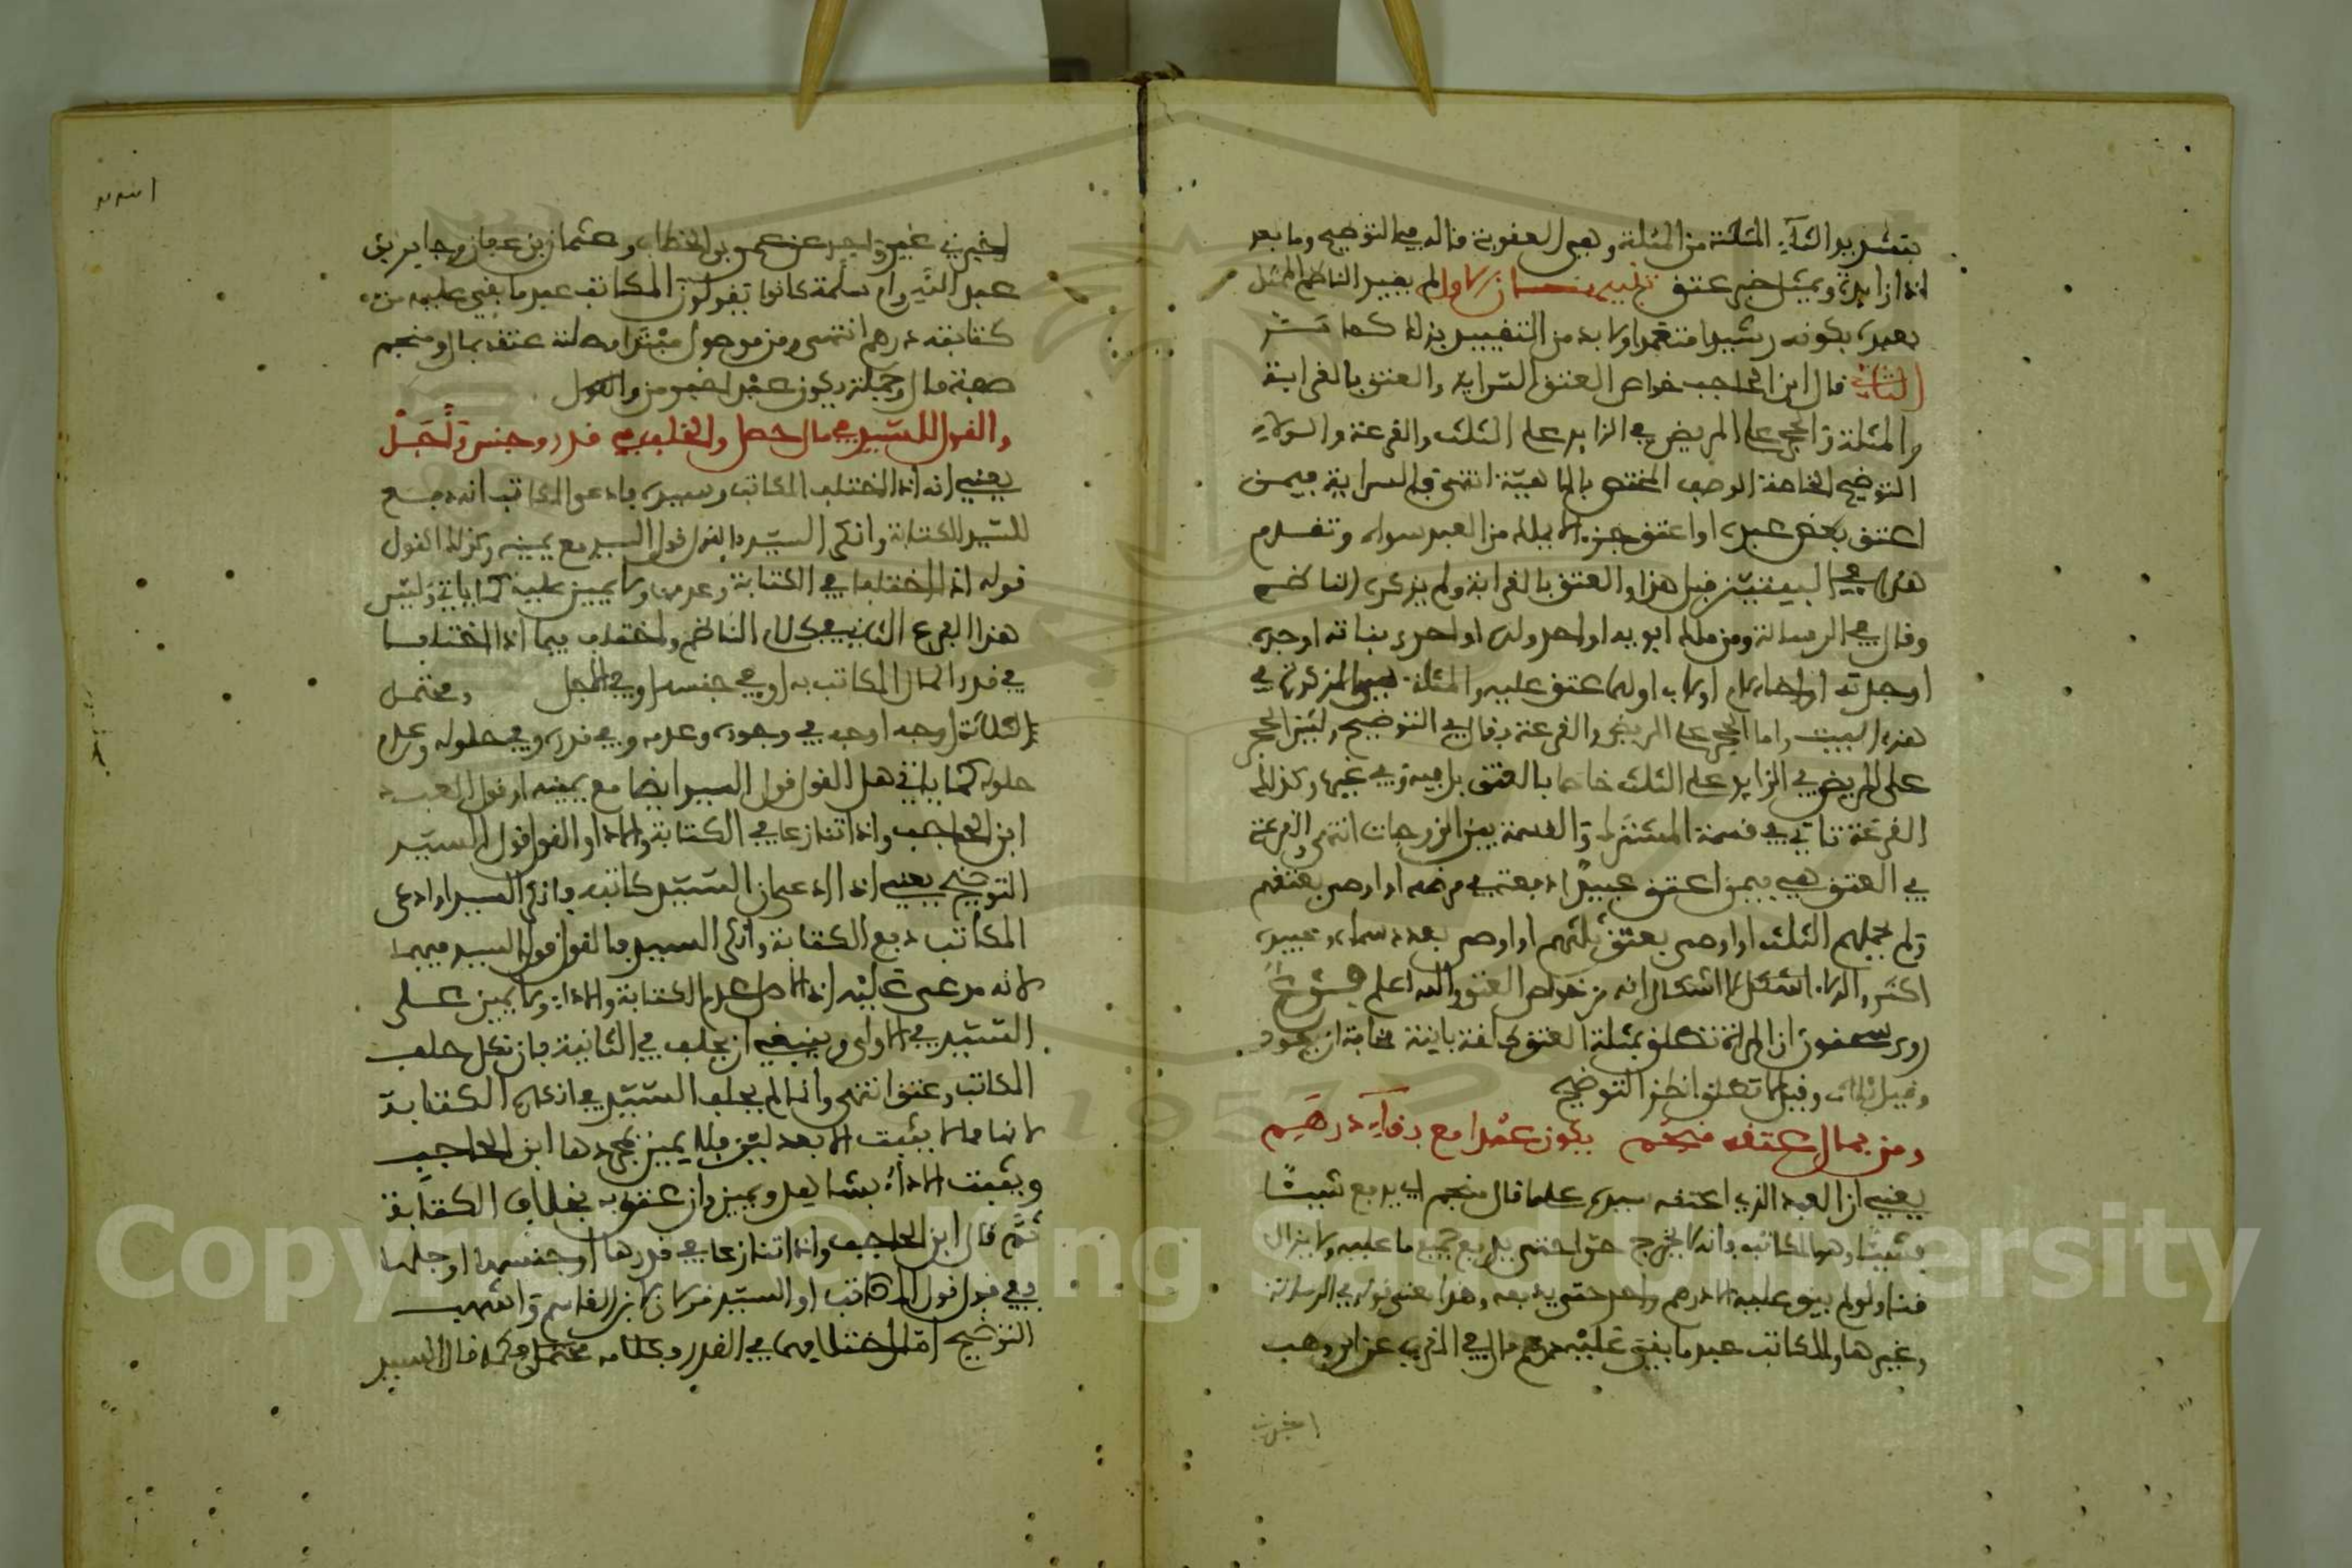 بتشديد الثاء المثلثة من المثلة وهي العقوبة قاله في التوضيح وما بعد
اذا زايدة ويمثل خبر عتق تنبيهان الاول لم يقيد الناظم المثل
بعبده بكونه رشيدا متعمدا ولا بد من التقييد بذلك كما مر
الثاني قال ابن الحاجب خواص العتق السراية والعتق بالقرابة
والمثلة والحجر على المريض في الزايد على الثلث والقرعة والولاء
التوضيح الخاصة الوصف المختص بالماهية انتهى فالسراية فيمن
اعتق بعض عبده او اعتق جزءا يملك من العبد سواه وتقدم
هذا في البيتين قبل هذا والعتق بالقرابة ولم يذكره الناظم
وقال في الرسالة ومن ملك ابويه او احد ولده او احد بناته او جده
او جدته او اخاه لام او لاب او لهما عتق عليه والمثلة هي المذكورة في
هذا البيت واما الحجر على المريض والقرعة فقال في التوضيح وليس الحجر
على المريض في الزايد على الثلث خاصا بالعتق بل فيه وفي غيره وكذلك
القرعة تاتي في قسمة المشترك والقسمة بين الزوجات انتهى والقرعة
في العتق هي فيمن اعتق عبيدا دفعة في مرضه او اوصى بعتقهم
ولم يحملهم الثلث او اوصى بعتق ثلثهم او اوصى بعدد سماه وعبيده
اكثر والولاء لا اشكال انه من خواص العتق والله اعلم فرع
روى سحنون ان المراة تطلق بمثلة العتق طلقة باينة مخافة ان يعود
وقيل وقيل لا تطلق انظر التوضيح
ومن بمال عتقه منجم يكون عبدا مع بقاء درهم
يعني ان العبد الذي اعتقه سيده على مال منجم اي يدفع شيئا
فشيئا وهو المكاتب فانه لا يخرج حرا حتى يدفع جميع ما عليه ولا يزال
قنا ولو لم يبق عليه الا درهم واحد حتى يدفعه وهذا معنى قوله في الرسالة
وغيرها والمكاتب عبد ما بقي عليه درهم قال في الذخيرة عن ابن وهب
اخبرني
اخبرني غير واحد عن عمر بن الخطاب وعثمان بن عفان وجابر بن
عبد الله وام سلمة كانوا يقولون المكاتب عبد ما بقي عليه من
كتابته درهم انتهى ومن موصول مبتدا وصلته عتقه بمال ومنجم
صفة مال وجملة يكون عبدا خبر من والله
والقول للسيد في مال حصل والخلف في قدر وجنس واجل
يعني انه اذا اختلف المكاتب وسيده فادعى المكاتب انه دفع
للسيد الكتابة وانكر السيد فالقول قول السيد مع يمينه وكذلك القول
قوله اذا اختلفا في الكتابة وعدمها ولا يمين عليه كما ياتي وليس
هذا الفرع الثاني في كلام الناظم واختلف فيما اذا اختلفا
في قدر المال المكاتب به او في جنسه او في الاجل ويحتمل
الثلاثة اوجه في وجوده وعدمه وفي قدره وفي حلوله وعدم
حلوله كما ياتي هل القول قول السيد ايضا مع يمينه او قول العبد
ابن الحاجب واذا تنازعا في الكتابة والاداء فالقول قول السيد
التوضيح يعني اذا ادعى ان السيد كاتبه وانكر السيد او ادعى
المكاتب دفع الكتابة وانكر السيد فالقول قول السيد فيهما
لانه مدعى عليه اذ الاصل عدم الكتابة والاداء ولا يمين على
السيد في الاولى وينبغي ان يحلف في الثانية فان نكل حلف
المكاتب وعتق انتهى وانما لم يحلف السيد في انكار الكتابة
لانها مما لا يثبت الا بعدلين فلا يمين بمجردها ابن الحاجب
ويثبت الاداء بشاهد ويمين وان عتق به بخلاف الكتابة
ثم قال ابن الحاجب واذا تنازعا في قدرها او جنسها او اجلها
ففي قبول قول المكاتب او السيد قولان لابن القاسم واشهب
التوضيح اما اختلافهما في القدر فكلامه محتمل كما قال السيد